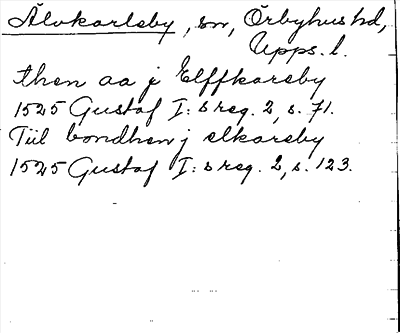 Älvkarleby, sn, Örbyhus hd,
Upps. l.
then aa j Elffkareby
1525 Gustaf I:s reg. 2, s. 71.
Tiil bondhen j elkareby
1525 Gustaf I:s reg. 2, s. 123.